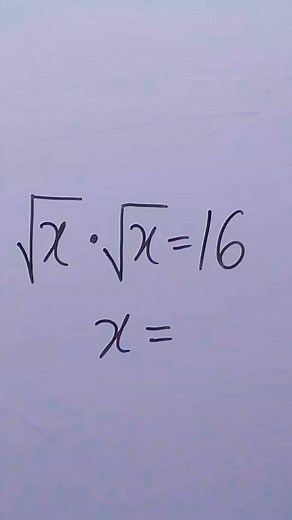 √x · √x = 16
x =